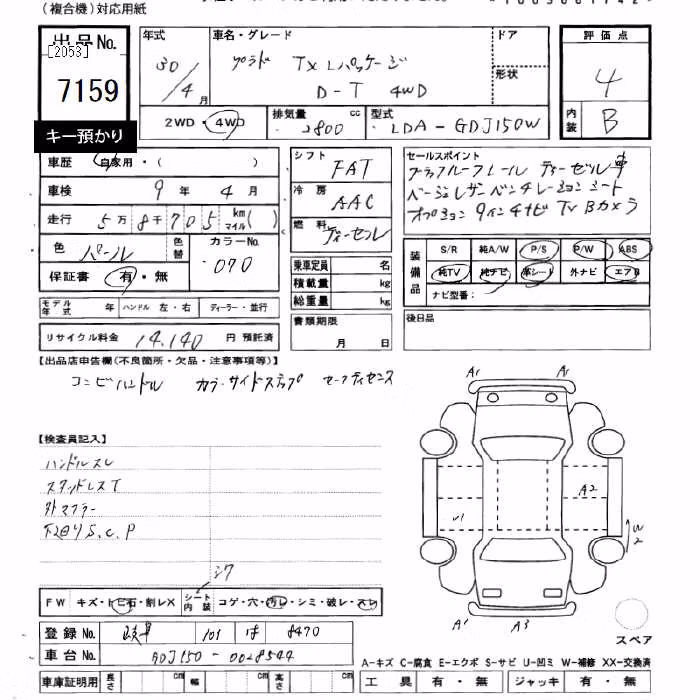 (複合機)対応用紙
出品No.
[2053]
7159
キー預かり
年式
30/4月
車名・グレード
プラド TXLパッケージ
D-T 4WD
ドア
形状
2WD・4WD
排気量 2800 cc
型式 LDA-GDJ150W
評価点
4
内装 B
車歴 自家用・( )
車検 9年 4月
走行 5万8千705 km マイル( )
色 パール 色替
カラーNo. 070
保証書 有・無
シフト FAT
冷房 AAC
燃料 ディーゼル
乗車定員 名
積載量 kg
総重量 kg
セールスポイント
ルーフレール ディーゼル車
ベージュレザー ベンチレーションシート
オプション 9インチナビ TV Bカメラ
装備品 S/R 純A/W P/S P/W ABS
純TV 純ナビ 革シート 外ナビ エアB
ナビ型番:
モデル年式 年 ハンドル 左・右 ディーラー・並行
リサイクル料金 14,140 円 預託済
書類期限 月 日
後日品
【出品店申告欄(不良箇所・欠品・注意事項等)】
コンビハンドル カラーサイドステップ セーフティセンス
【検査員記入】
ハンドルスレ
スタッドレスT
外マフラー
S.C.P
シワ
A1 A1
A2
W1
W2
A1 A3
スペア
FW キズ・トビ石・割レX シート内装 コゲ・穴・汚レ・シミ・破レ・スレ
登録No. 岐阜 101 は 8470
車台No. GDJ150-0028544
車庫証明用 長さ cm 幅 cm 高さ cm
A-キズ C-腐食 E-エクボ S-サビ U-凹ミ W-補修 XX-交換済
工具 有・無 ジャッキ 有・無